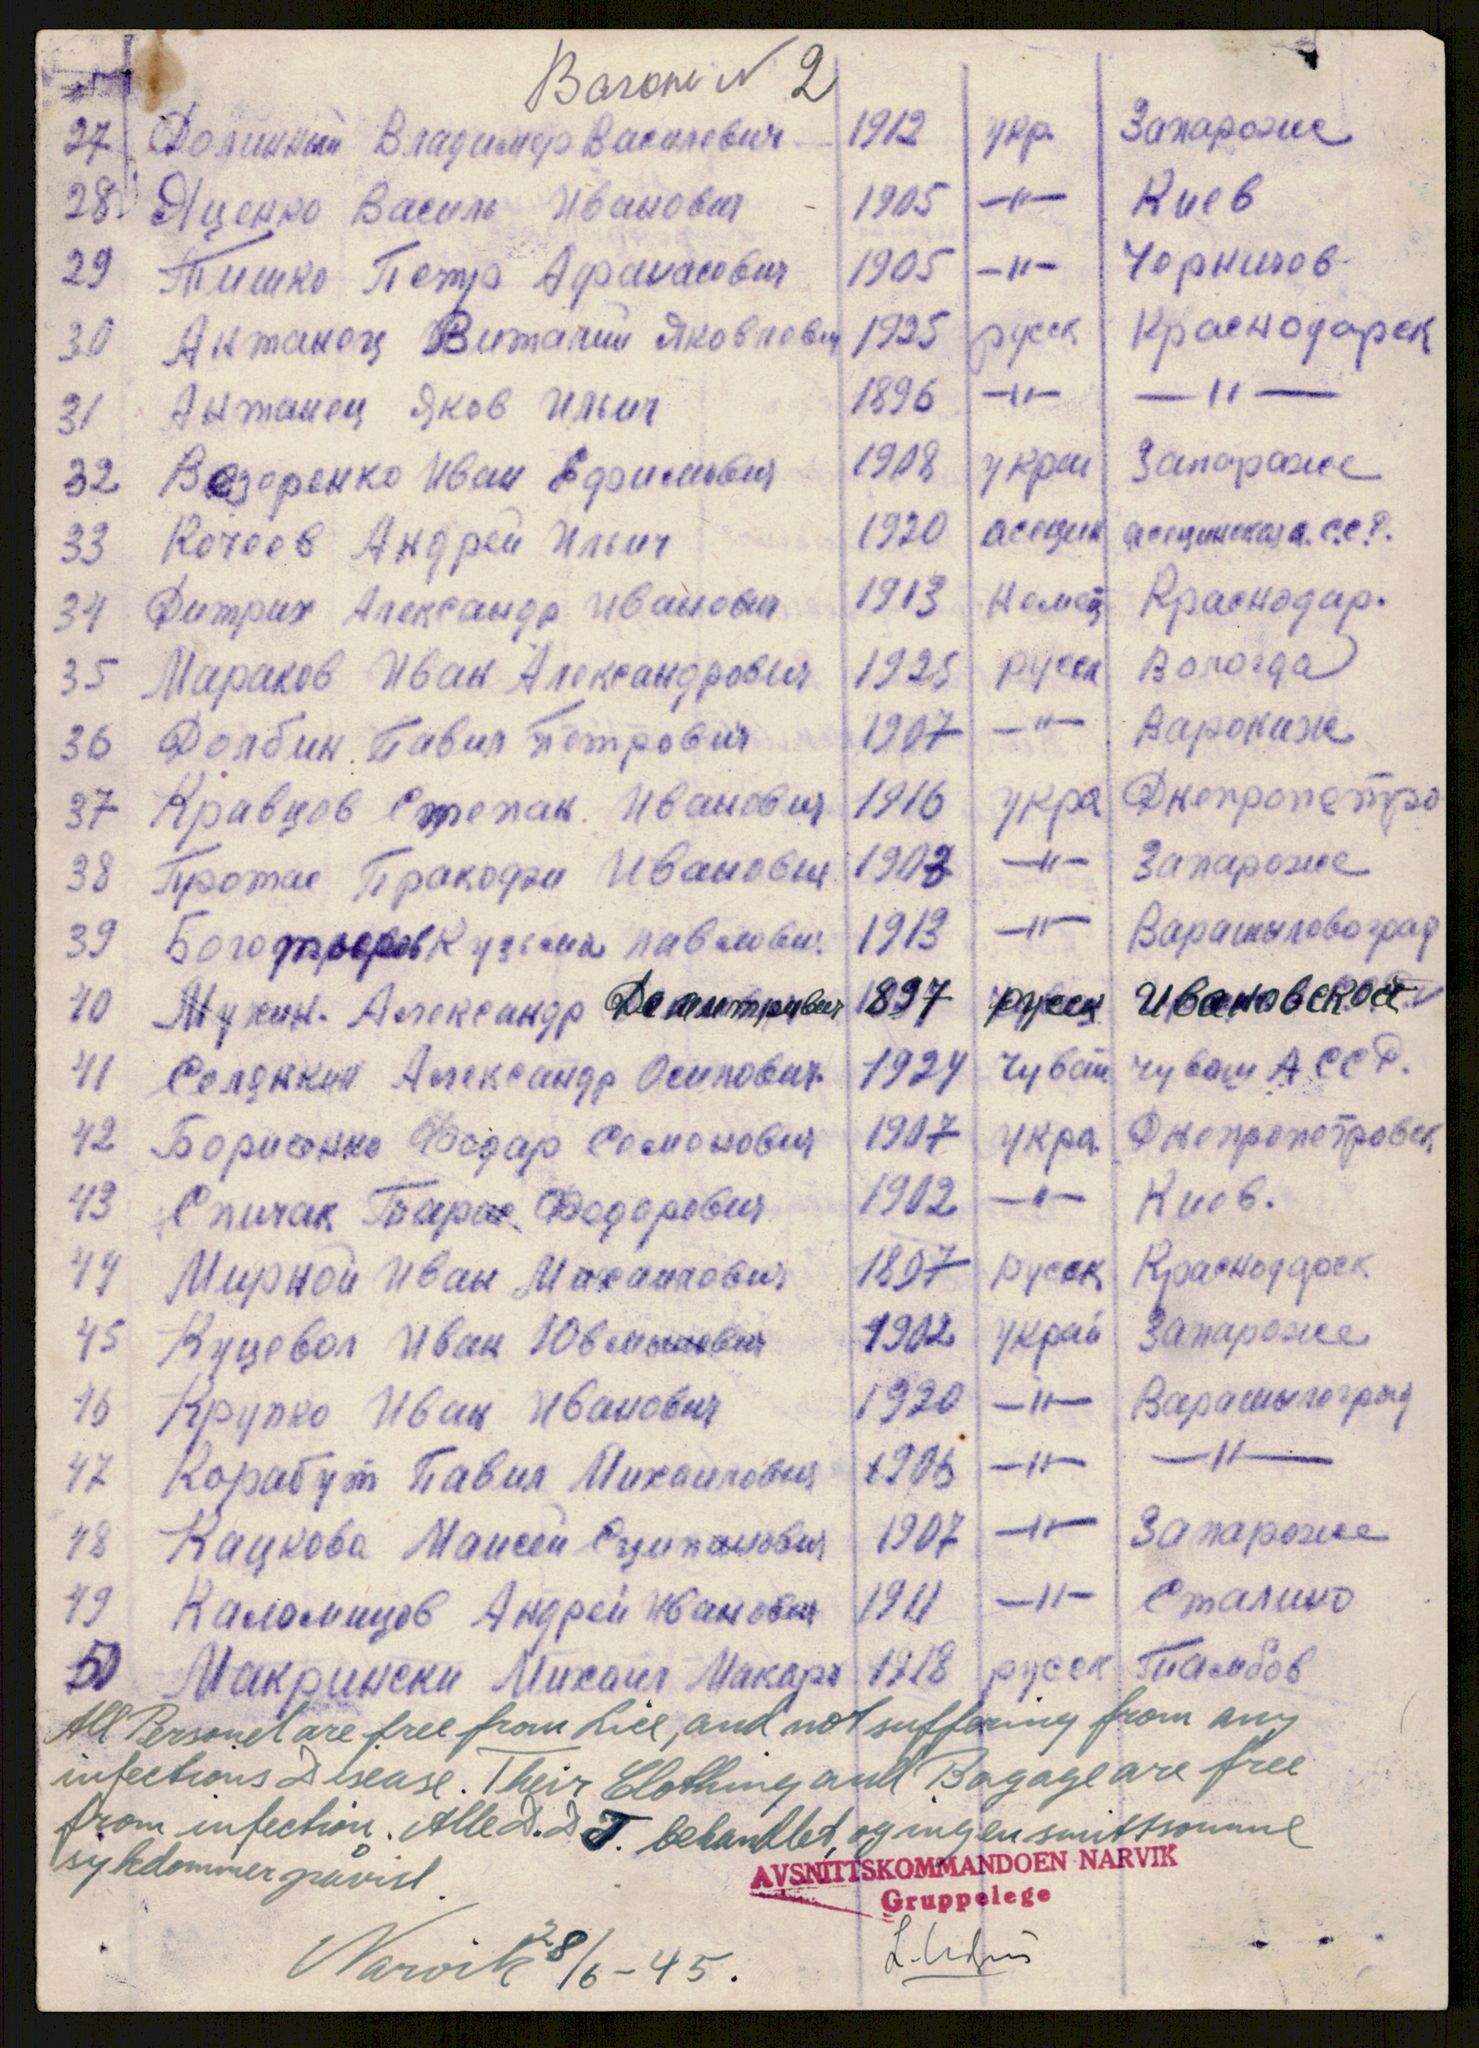 Вагон N 2
27 Долинный Владимир Василевич 1912 укр Запароже
28 Яценко Василь Иванович 1905 —"— Киев
29 Тишко Петр Афанасович 1905 —"— Чернигов
30 Антанец Виталий Яковлевич 1925 русск Краснодарск
31 Антанец Яков Ильич 1896 —"— —"—
32 Иван Ефримович 1908 украи Запароже
33 Кочеев Андрей Ильич 1920 асецин асецинская а.с.с.р.
34 Дитрих Александр Иванович 1913 Немец Краснодар.
35 Мараков Иван Александрович 1925 русск Вологда
36 Долбин Павил Петрович 1907 —"— Варониж
37 Кравцов Степан Иванович 1916 укра Днепропетро
38 Протас Пракофи Иванович 1903 —"— Запароже
39 Кузьма павлови. 1913 —"— Варашыловоград
40 Мухин. Александр Демитривич 1897 русск Ивановской
41 Селянкин Александр Осипович 1924 Чуваш чуваш А ССР.
42 Борисенко Федар Семонович 1907 укра Днепропетровск
43 Спичак Тарас Федорович 1902 —"— Киев.
44 Мирной Иван Михаилович 1897 русск Краснодарск
45 Куцевол Иван 1902 украи Запароже
46 Крупко Иван Иванович 1920 —"— Варашылоград
47 Корабут Павил Михаилович 1906 —"— —"—
48 Кацкова Маисей 1907 —"— Запароже
49 Каломицов Андрей Иванович 1911 —"— Сталино
50 Макрински Михаил Макаро 1918 русск Тамбов
All Personel are free from Lice, and not suffering from any
infectious Disease. Their Clothing and Bagage are free
from infection. Alle D.D.T. behandlet, og ingen smittsomme
sykdommer påvist.
AVSNITTSKOMMANDOEN NARVIK
Gruppelege
Narvik 28/6-45.